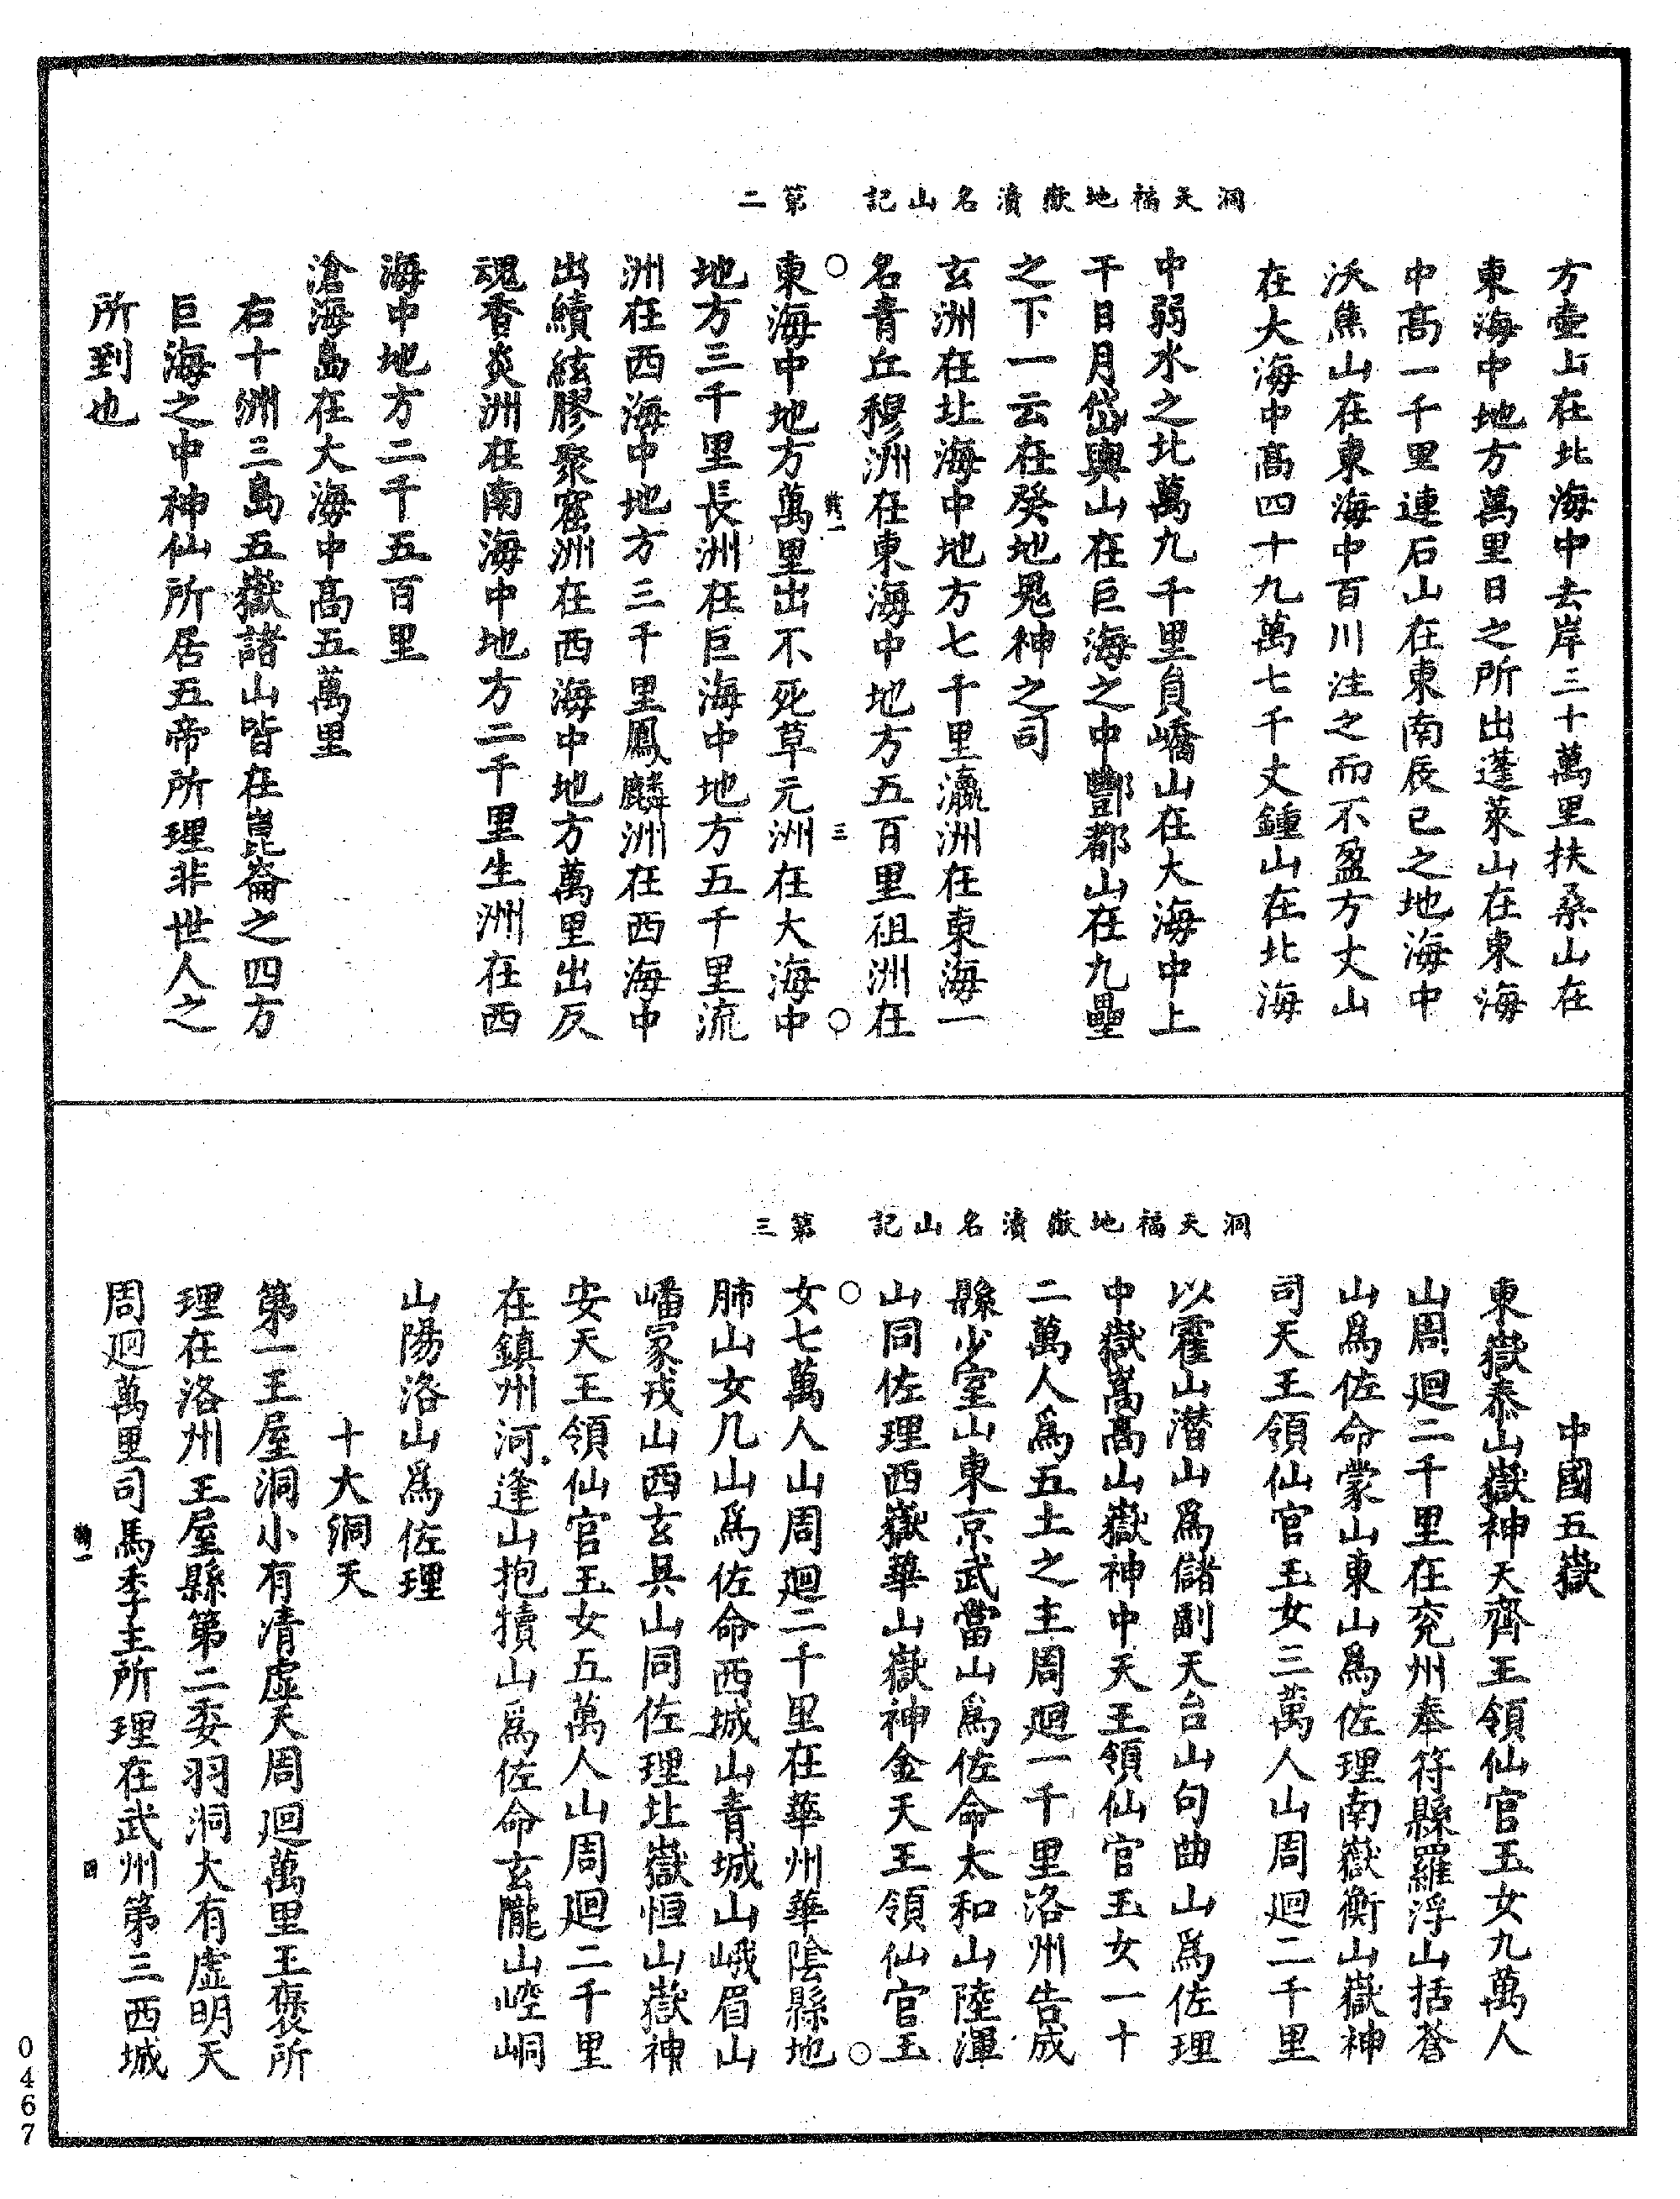 洞天福地嶽瀆名山記　第二
方壺山在北海中去岸三十萬里扶桑山在
東海中地方萬里日之所出蓬萊山在東海
中高一千里連石山在東南辰巳之地海中
沃焦山在東海中百川注之而不盈方丈山
在大海中高四十九萬七千丈鍾山在北海
中弱水之北萬九千里員嶠山在大海中上
干日月岱輿山在巨海之中酆都山在九壘
之下一云在癸地鬼神之司
玄洲在北海中地方七千里瀛洲在東海一
名青丘穆洲在東海中地方五百里祖洲在
三
東海中地方萬里出不死草元洲在大海中
地方三千里長洲在巨海中地方五千里流
洲在西海中地方三千里鳳麟洲在西海中
出續絃膠聚窟洲在西海中地方萬里出反
魂香炎洲在南海中地方二千里生洲在西
海中地方二千五百里
滄海島在大海中高五萬里
右十洲三島五嶽諸山皆在崑崙之四方
巨海之中神仙所居五帝所理非世人之
所到也
洞天福地嶽瀆名山記　第三
中國五嶽
東嶽泰山嶽神天齊王領仙官玉女九萬人
山周迴二千里在兗州奉符縣羅浮山括蒼
山爲佐命蒙山東山爲佐理南嶽衡山嶽神
司天王領仙官玉女三萬人山周迴二千里
以霍山潛山爲儲副天台山句曲山爲佐理
中嶽嵩高山嶽神中天王領仙官玉女一十
二萬人爲五土之主周迴一千里洛州告成
縣少室山東京武當山爲佐命太和山陸渾
山同佐理西嶽華山嶽神金天王領仙官玉
女七萬人山周迴二千里在華州華陰縣地
肺山女几山爲佐命西城山青城山峨眉山
嶓冢戎山西玄具山同佐理北嶽恒山嶽神
安天王領仙官玉女五萬人山周迴二千里
在鎮州河逢山抱犢山爲佐命玄隴山崆峒
山陽洛山爲佐理
十大洞天
第一王屋洞小有清虛天周迴萬里王褒所
理在洛州王屋縣第二委羽洞大有虛明天
周迴萬里司馬季主所理在武州第三西城
四
0467